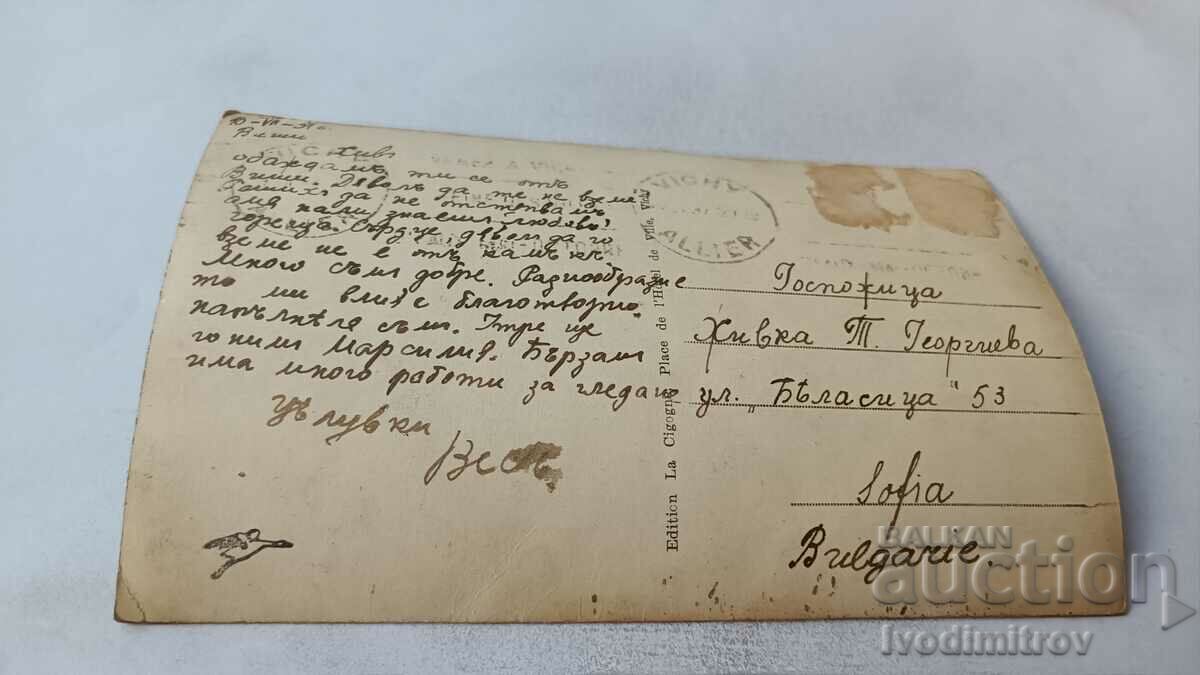 10-VII-
Виши
обаждамъ ти се отъ
Виши. Дяволъ да те не вземе
да не отстъпвамъ
знаешъ любовь!
гореща. Сърдце, дяволъ да го
вземе не е отъ камъкъ.
Много съмъ добре. Разнообразие
то ми влияе благотворно.
напълнѣла съмъ. Утре ще
гонимъ Марсилия. Бързамъ
има много работи за гледане
Цѣлувки
Весе
VICHY
ALLIER
Edition La Cigogne, Place de l'Hôtel de Ville, Vichy
Госпожица
Живка Т. Георгиева
ул. „Бѣласица" 53
Sofia
Bulgarie.
BALKAN
auction
Ivodimitrov